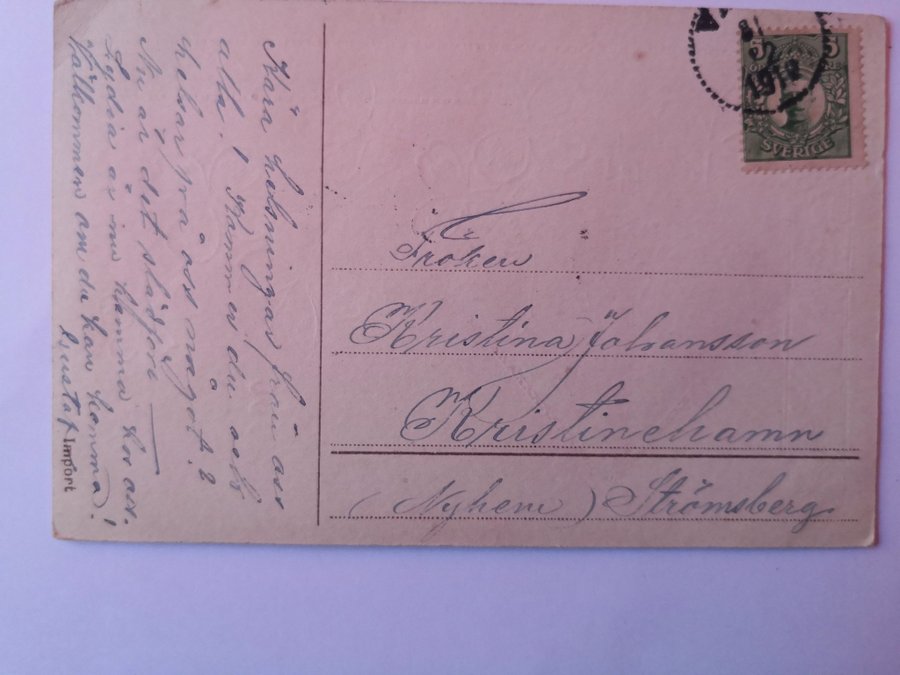 Kära helsningar från oss
alla. Kommer du och
helsar på oss något?
Nu är det slädföre
Lydia är nu hämma hos oss.
Välkommen om du kan komma!
Gustaf
Import
5 5
SVERIGE
1912
Fröken
Kristina Johansson
Kristinehamn
(Nyhem) Strömsberg